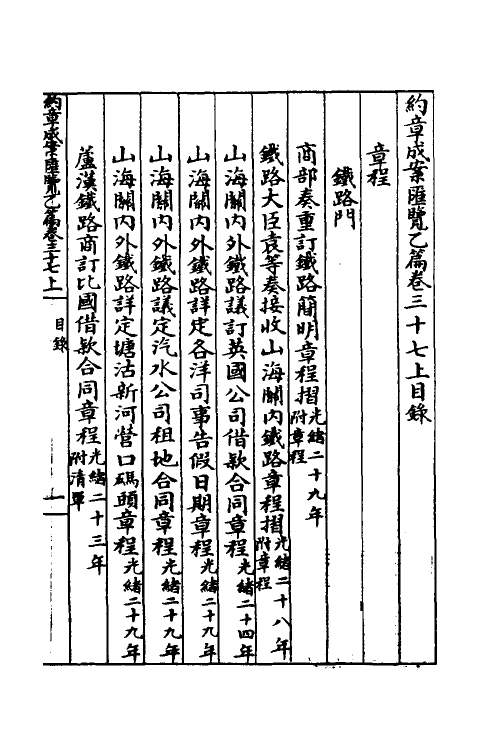 約章成案匯覽乙篇卷三十七上目錄
章程
鐵路門
商部奏重訂鐵路簡明章程摺光緒二十九年附章程
鐵路大臣袁等奏接收山海關內鐵路章程摺光緒二十八年附章程
山海關內外鐵路議訂英國公司借款合同章程光緒二十四年
山海關內外鐵路詳定各洋司事告假日期章程光緒二十九年
山海關內外鐵路議定汽水公司租地合同章程光緒二十九年
山海關內外鐵路詳定塘沽新河營口碼頭章程光緒二十九年
蘆漢鐵路商訂比國借款合同章程光緒二十三年附清單
約章成案匯覽乙篇卷三十七上
目錄
一